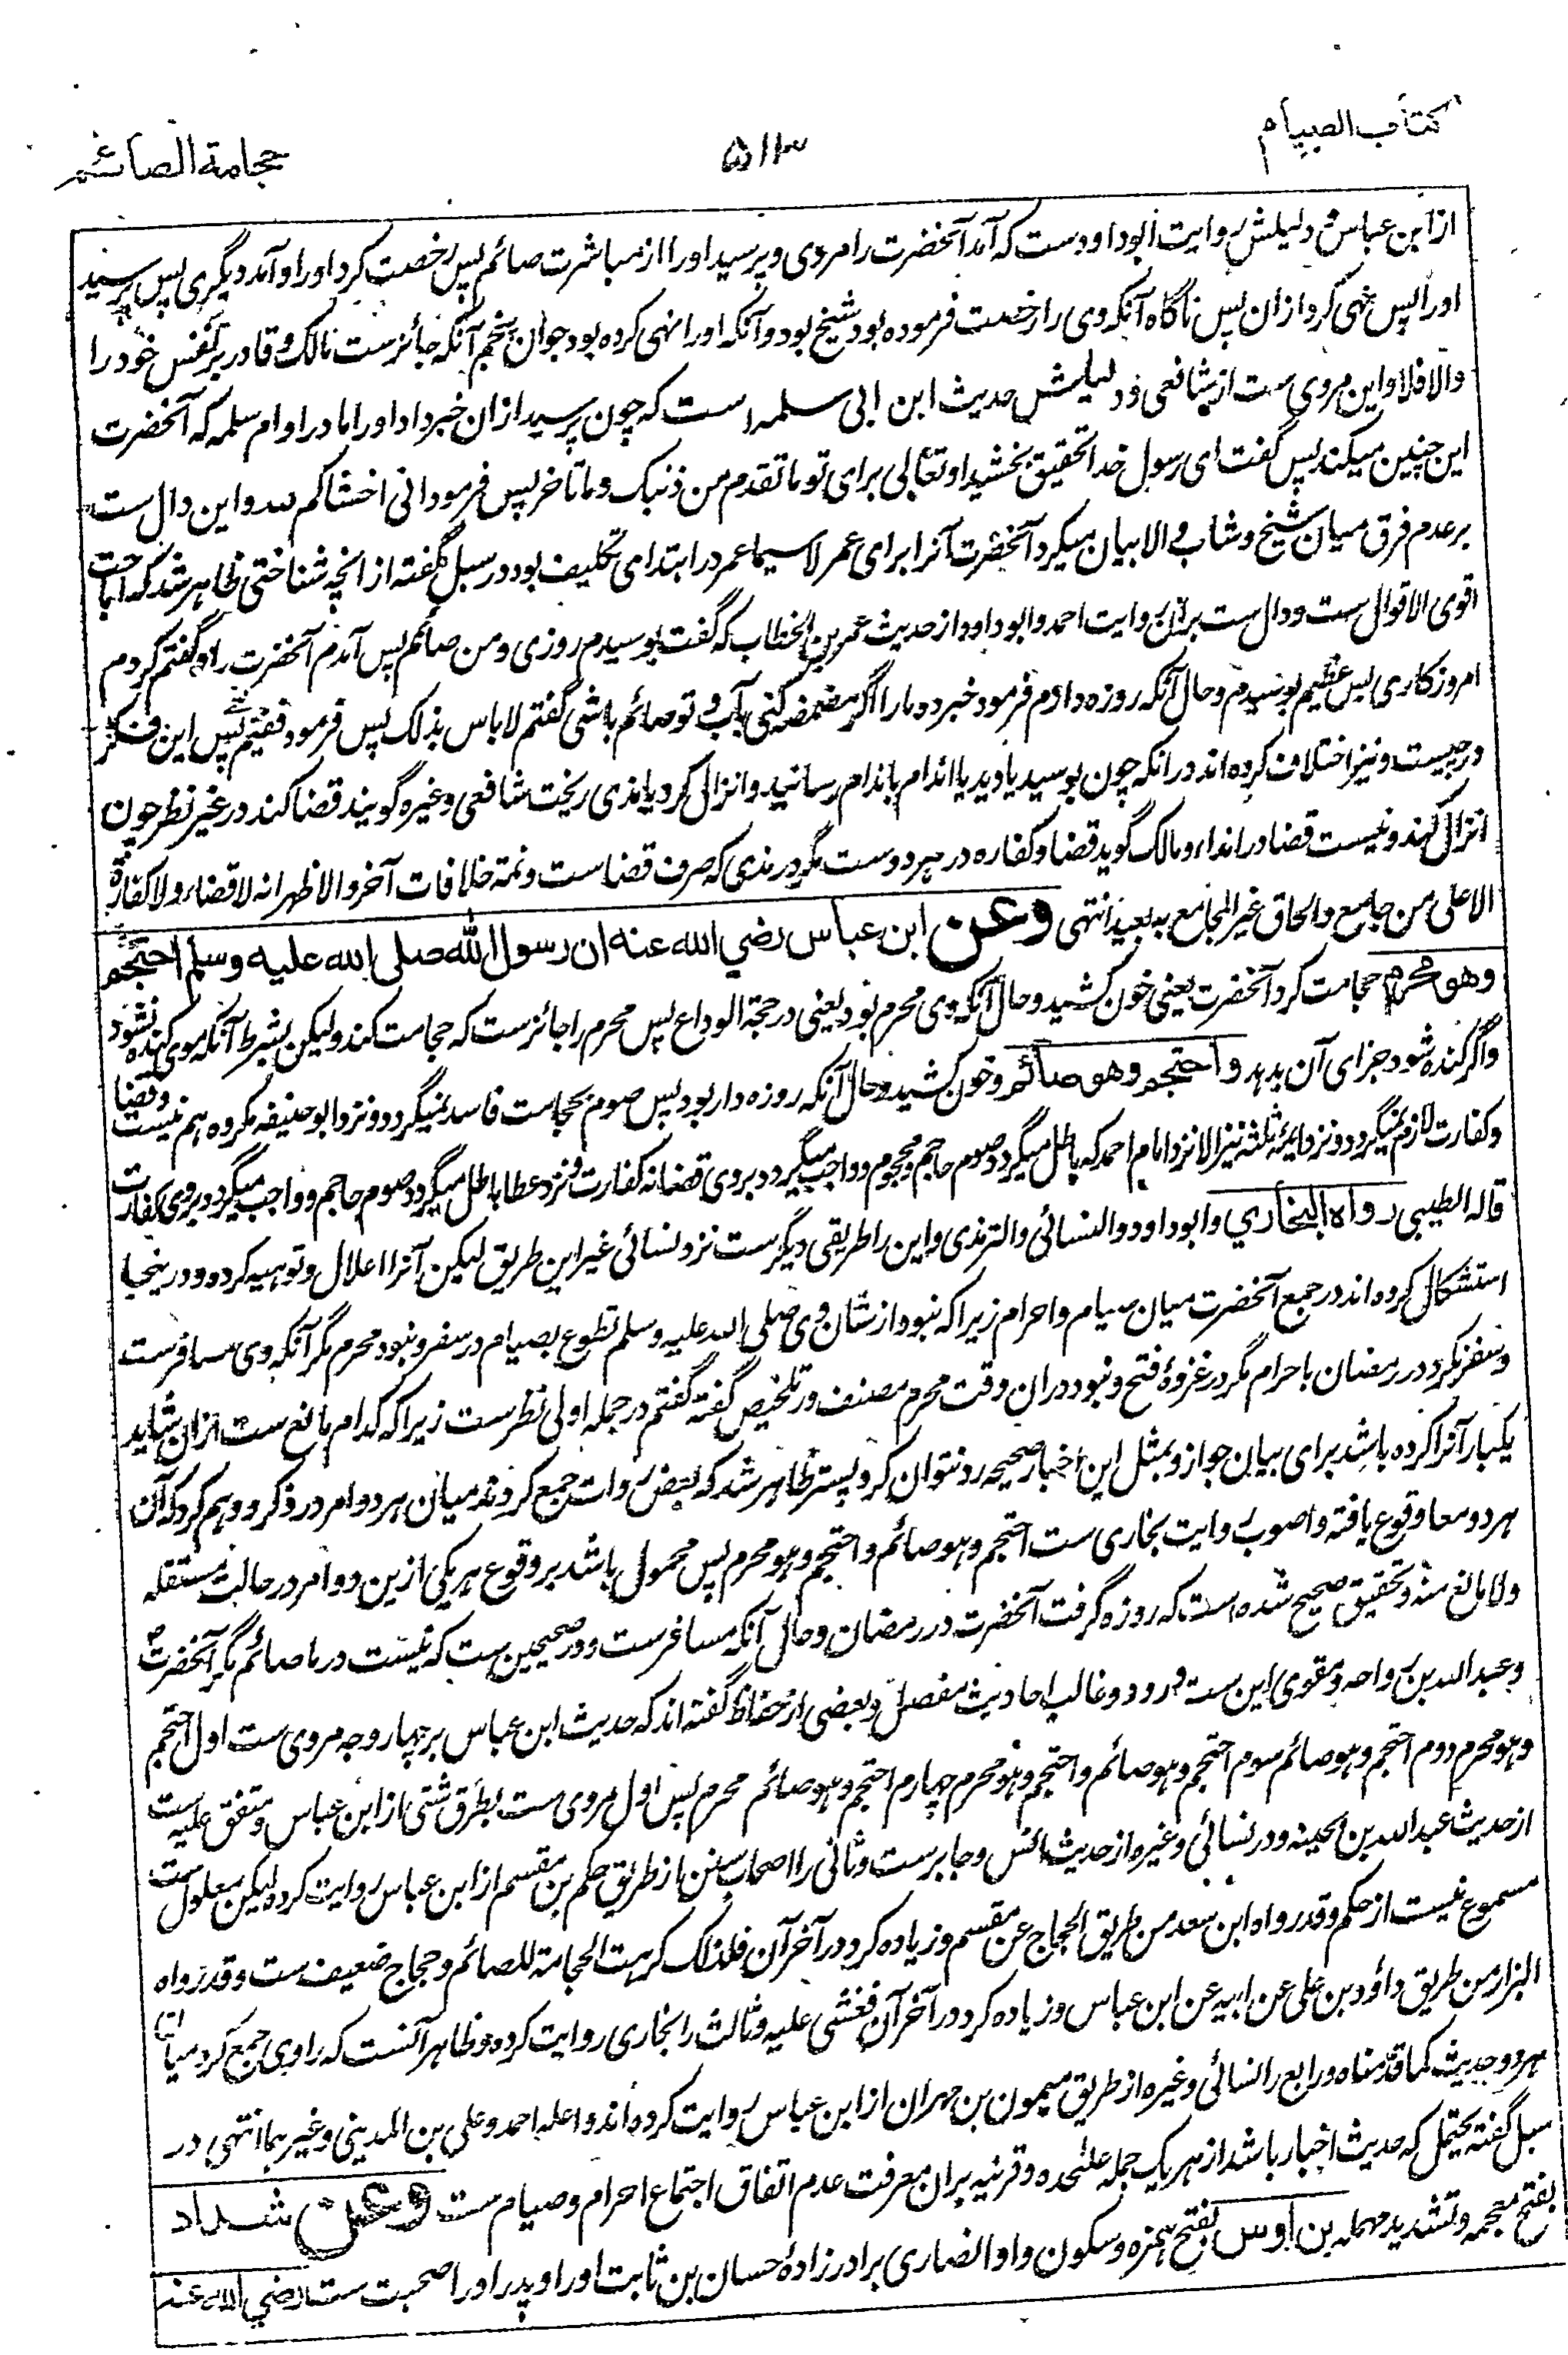 کتاب الصیام
۵۱۳
حجامة الصائم
از ابن عباس و دلیلش روایت ابوداودست که آمد آنحضرت را مردی و پرسید او را از مباشرت صائم پس رخصت کرد او را و آمد دیگری پس پرسید
او را پس نهی کرد ازان پس ناگاه آنکه وی را رخصت فرموده بود شیخ بود و آنکه او را نهی کرده بود جوان پنجم آنکه جائزست مالک و قادر بر نفس خود را
والا فلا و این مروی ست از شافعی و دلیلش حدیث ابن ابی سلمه است که چون پرسید ازان خبر داد او را مادر او ام سلمه که آنحضرت
این چنین میکند پس گفت ای رسول خدا تحقیق بخشید او تعالی برای تو ما تقدم من ذنبک و ما تاخر پس فرمود انی اخشاکم لله و این دال ست
بر عدم فرق میان شیخ و شاب و الا بیان میکرد آنحضرت آنرا برای عمر لا سیما عمر در ابتدای تکلیف بود در سبل گفته از انچه شناختی ظاهر شد که اباحت
اقوی الاقوال ست و دال ست بران روایت احمد و ابوداود از حدیث عمر بن الخطاب که گفت بوسیدم روزی و من صائم پس آمدم آنحضرت را و گفتم کردم
امروز کاری بس عظیم بوسیدم و حال آنکه روزه دارم فرمود خبر ده ما را اگر مضمضه کنی بآب و تو صائم باشی گفتم لا باس بذلک پس فرمود ففیم یعنی پس این فکر
در چیست و نیز اختلاف کرده اند در انکه چون بوسید یا دید یا اندام باندام رسانید و انزال کرد یا مذی ریخت شافعی و غیره گویند قضا کند در غیر نظر چون
انزال کند و نیست قضا در امذاء و مالک گوید قضا و کفاره در هر دوست مگر در مذی که صرف قضاست و ثمة خلافات آخر و الاظهر انه لا قضاء و لا کفارة
الا علی من جامع و الحاق غیر المجامع به بعید انتهی وعن ابن عباس رضي الله عنه ان رسول الله صلى الله عليه وسلم احتجم
وهو محرم حجامت کرد آنحضرت یعنی خون کشید و حال آنکه وی محرم بود یعنی در حجة الوداع پس محرم را جائزست که حجامت کند ولیکن بشرط آنکه موی کنده نشود
و اگر کنده شود جزای آن بدهد واحتجم وهو صائم و خون کشید و حال آنکه روزه دار بود پس صوم بحجامت فاسد نمیگردد و نزد ابو حنیفه مکروه هم نیست و قضا
و کفارت لازم نمیگردد و نزد ائمه ثلثه نیز الا نزد امام احمد که باطل میگردد صوم حاجم و محجوم و واجب میگردد بروی قضا نه کفارت و نزد عطا باطل میگردد صوم حاجم و واجب میگردد بروی کفارت
قاله الطیبی رواه البخاري و ابوداود و النسائی و الترمذی و این را طریقی دیگرست نزد نسائی غیر این طریق لیکن آنرا اعلال و توهیه کرده و درینجا
استشکال کرده اند در جمع آنحضرت میان صیام و احرام زیرا که نبود از شان وی صلی الله علیه وسلم تطوع بصیام در سفر و نبود محرم مگر آنکه وی مسافرست
و سفر نکرد در رمضان باحرام مگر در غزوهٔ فتح و نبود دران وقت محرم مصنف در تلخیص گفته گفتم در جمله اولی نظرست زیرا که کدام مانع ست ازان شاید
یکبار آنرا کرده باشد برای بیان جواز و بمثل این اخبار صحیحه رد نتوان کرد پستر ظاهر شد که بعض روات جمع کردند میان هر دو امر در ذکر و وهم کرد که آن
هر دو معا وقوع یافته و اصوب روایت بخاری ست احتجم وهو صائم و احتجم وهو محرم پس محمول باشد بر وقوع هر یکی ازین دو امر در حالت مستقله
ولا مانع منه و تحقیق صحیح شده است که روزه گرفت آنحضرت در رمضان و حال آنکه مسافرست و در صحیحین ست که نیست در ما صائم مگر آنحضرت
و عبد الله بن رواحه و مقوی این ست ورود غالب احادیث مفصل و بعضی از حفاظ گفته اند که حدیث ابن عباس بر چهار وجه مروی ست اول احتجم
وهو محرم دوم احتجم وهو صائم سوم احتجم وهو صائم و احتجم وهو محرم چهارم احتجم وهو صائم محرم پس اول مروی ست بطرق شتی از ابن عباس و متفق علیه ست
از حدیث عبد الله بن بحینه و در نسائی و غیره از حدیث انس و جابرست و ثانی را اصحاب سنن از طریق حکم بن مقسم از ابن عباس روایت کرده لیکن معلول ست
مسموع نیست از حکم و قد رواه ابن سعد من طریق الحجاج عن مقسم و زیاده کرد در آخر آن فلذلک کرهت الحجامة للصائم و حجاج ضعیف ست و قد رواه
البزار من طریق داؤد بن علی عن ابیه عن ابن عباس و زیاده کرد در آخر آن فغشی علیه و ثالث را بخاری روایت کرده و ظاهر آنست که راوی جمع کرد میان
هر دو حدیث کما قدمناه و رابع را نسائی و غیره از طریق میمون بن مهران از ابن عباس روایت کرده اند و اعله احمد و علی بن المدینی و غیرهما انتهی در
سبل گفته یحتمل که حدیث اخبار باشد از هر یک جمله علٰحده و قرینه بران معرفت عدم اتفاق اجتماع احرام و صیام ست وعن شداد
بفتح معجمه و تشدید مهمله بن اوس بفتح همزه و سکون واو انصاری برادر زادهٔ حسان بن ثابت او را و پدر او را صحبت ست رضي الله عنه